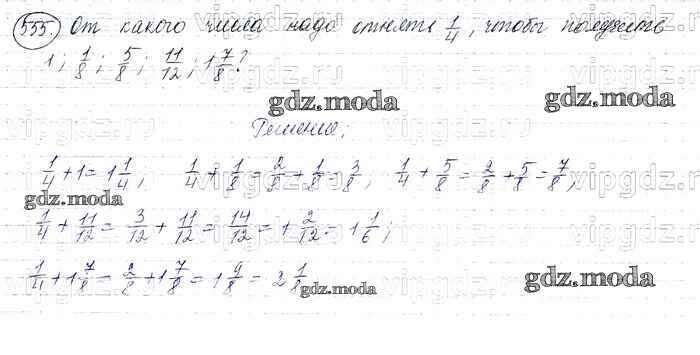 555. От какого числа надо отнять 1/4, чтобы получить
1; 1/8; 5/8; 11/12; 1 7/8?
gdz.moda
gdz.moda
vipgdz.ru
Решение:
1/4 + 1 = 1 1/4; 1/4 + 1/8 = 2/8 + 1/8 = 3/8; 1/4 + 5/8 = 2/8 + 5/8 = 7/8;
gdz.moda
1/4 + 11/12 = 3/12 + 11/12 = 14/12 = 1 2/12 = 1 1/6;
1/4 + 1 7/8 = 2/8 + 1 7/8 = 1 9/8 = 2 1/8
gdz.moda
gdz.moda